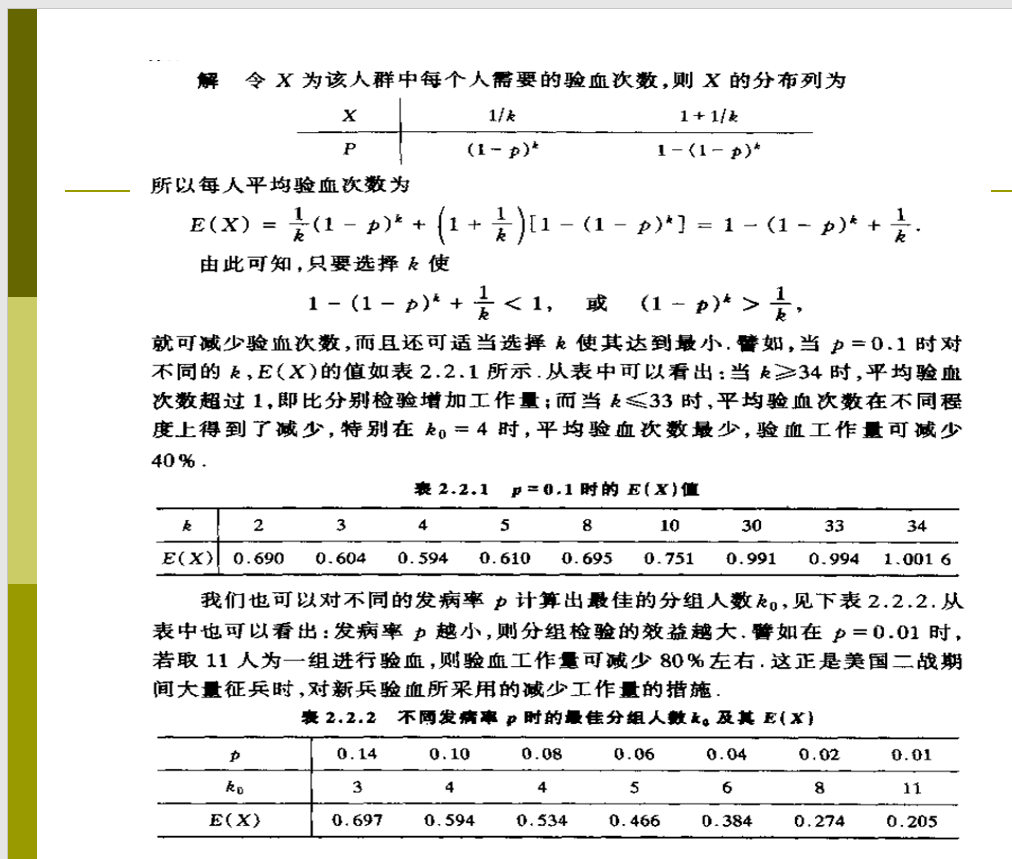 解 令 X 为该人群中每个人需要的验血次数,则 X 的分布列为
X 1/k 1+1/k
P (1-p)^k 1-(1-p)^k
所以每人平均验血次数为
E(X) = 1/k(1-p)^k + (1+1/k)[1-(1-p)^k] = 1-(1-p)^k + 1/k.
由此可知,只要选择 k 使
1-(1-p)^k + 1/k < 1, 或 (1-p)^k > 1/k,
就可减少验血次数,而且还可适当选择 k 使其达到最小.譬如,当 p=0.1 时对
不同的 k,E(X)的值如表 2.2.1 所示.从表中可以看出:当 k≥34 时,平均验血
次数超过 1,即比分别检验增加工作量;而当 k≤33 时,平均验血次数在不同程
度上得到了减少,特别在 k₀=4 时,平均验血次数最少,验血工作量可减少
40%.
表 2.2.1 p=0.1 时的 E(X)值
k 2 3 4 5 8 10 30 33 34
E(X) 0.690 0.604 0.594 0.610 0.695 0.751 0.991 0.994 1.001 6
我们也可以对不同的发病率 p 计算出最佳的分组人数k₀,见下表 2.2.2.从
表中也可以看出:发病率 p 越小,则分组检验的效益越大.譬如在 p=0.01 时,
若取 11 人为一组进行验血,则验血工作量可减少 80%左右.这正是美国二战期
间大量征兵时,对新兵验血所采用的减少工作量的措施.
表 2.2.2 不同发病率 p 时的最佳分组人数 k₀ 及其 E(X)
p 0.14 0.10 0.08 0.06 0.04 0.02 0.01
k₀ 3 4 4 5 6 8 11
E(X) 0.697 0.594 0.534 0.466 0.384 0.274 0.205